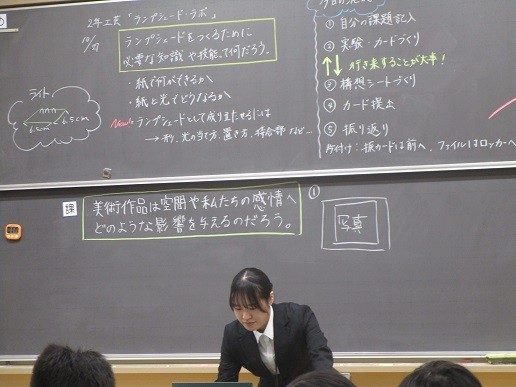 2年工芸 「ランプシェード・ラボ」
ランプシェードをつくるために
必要な知識や技能って何だろう。
・紙で何ができるか
・紙と光でどうなるか
New! ・ランプシェードとして成り立たせるには
→ 形、光の当て方、置き方、接合部など…
ライト
6.5cm
① 自分の課題記入
② 実験・カードづくり
行き来することが大事!
③ 構想シートづくり
④ カード提出
⑤ 振り返り
片付け:振カードは前へ、ファイルはロッカーへ
課
美術作品は空間や私たちの感情へ
どのような影響を与えるのだろう。
①
写真